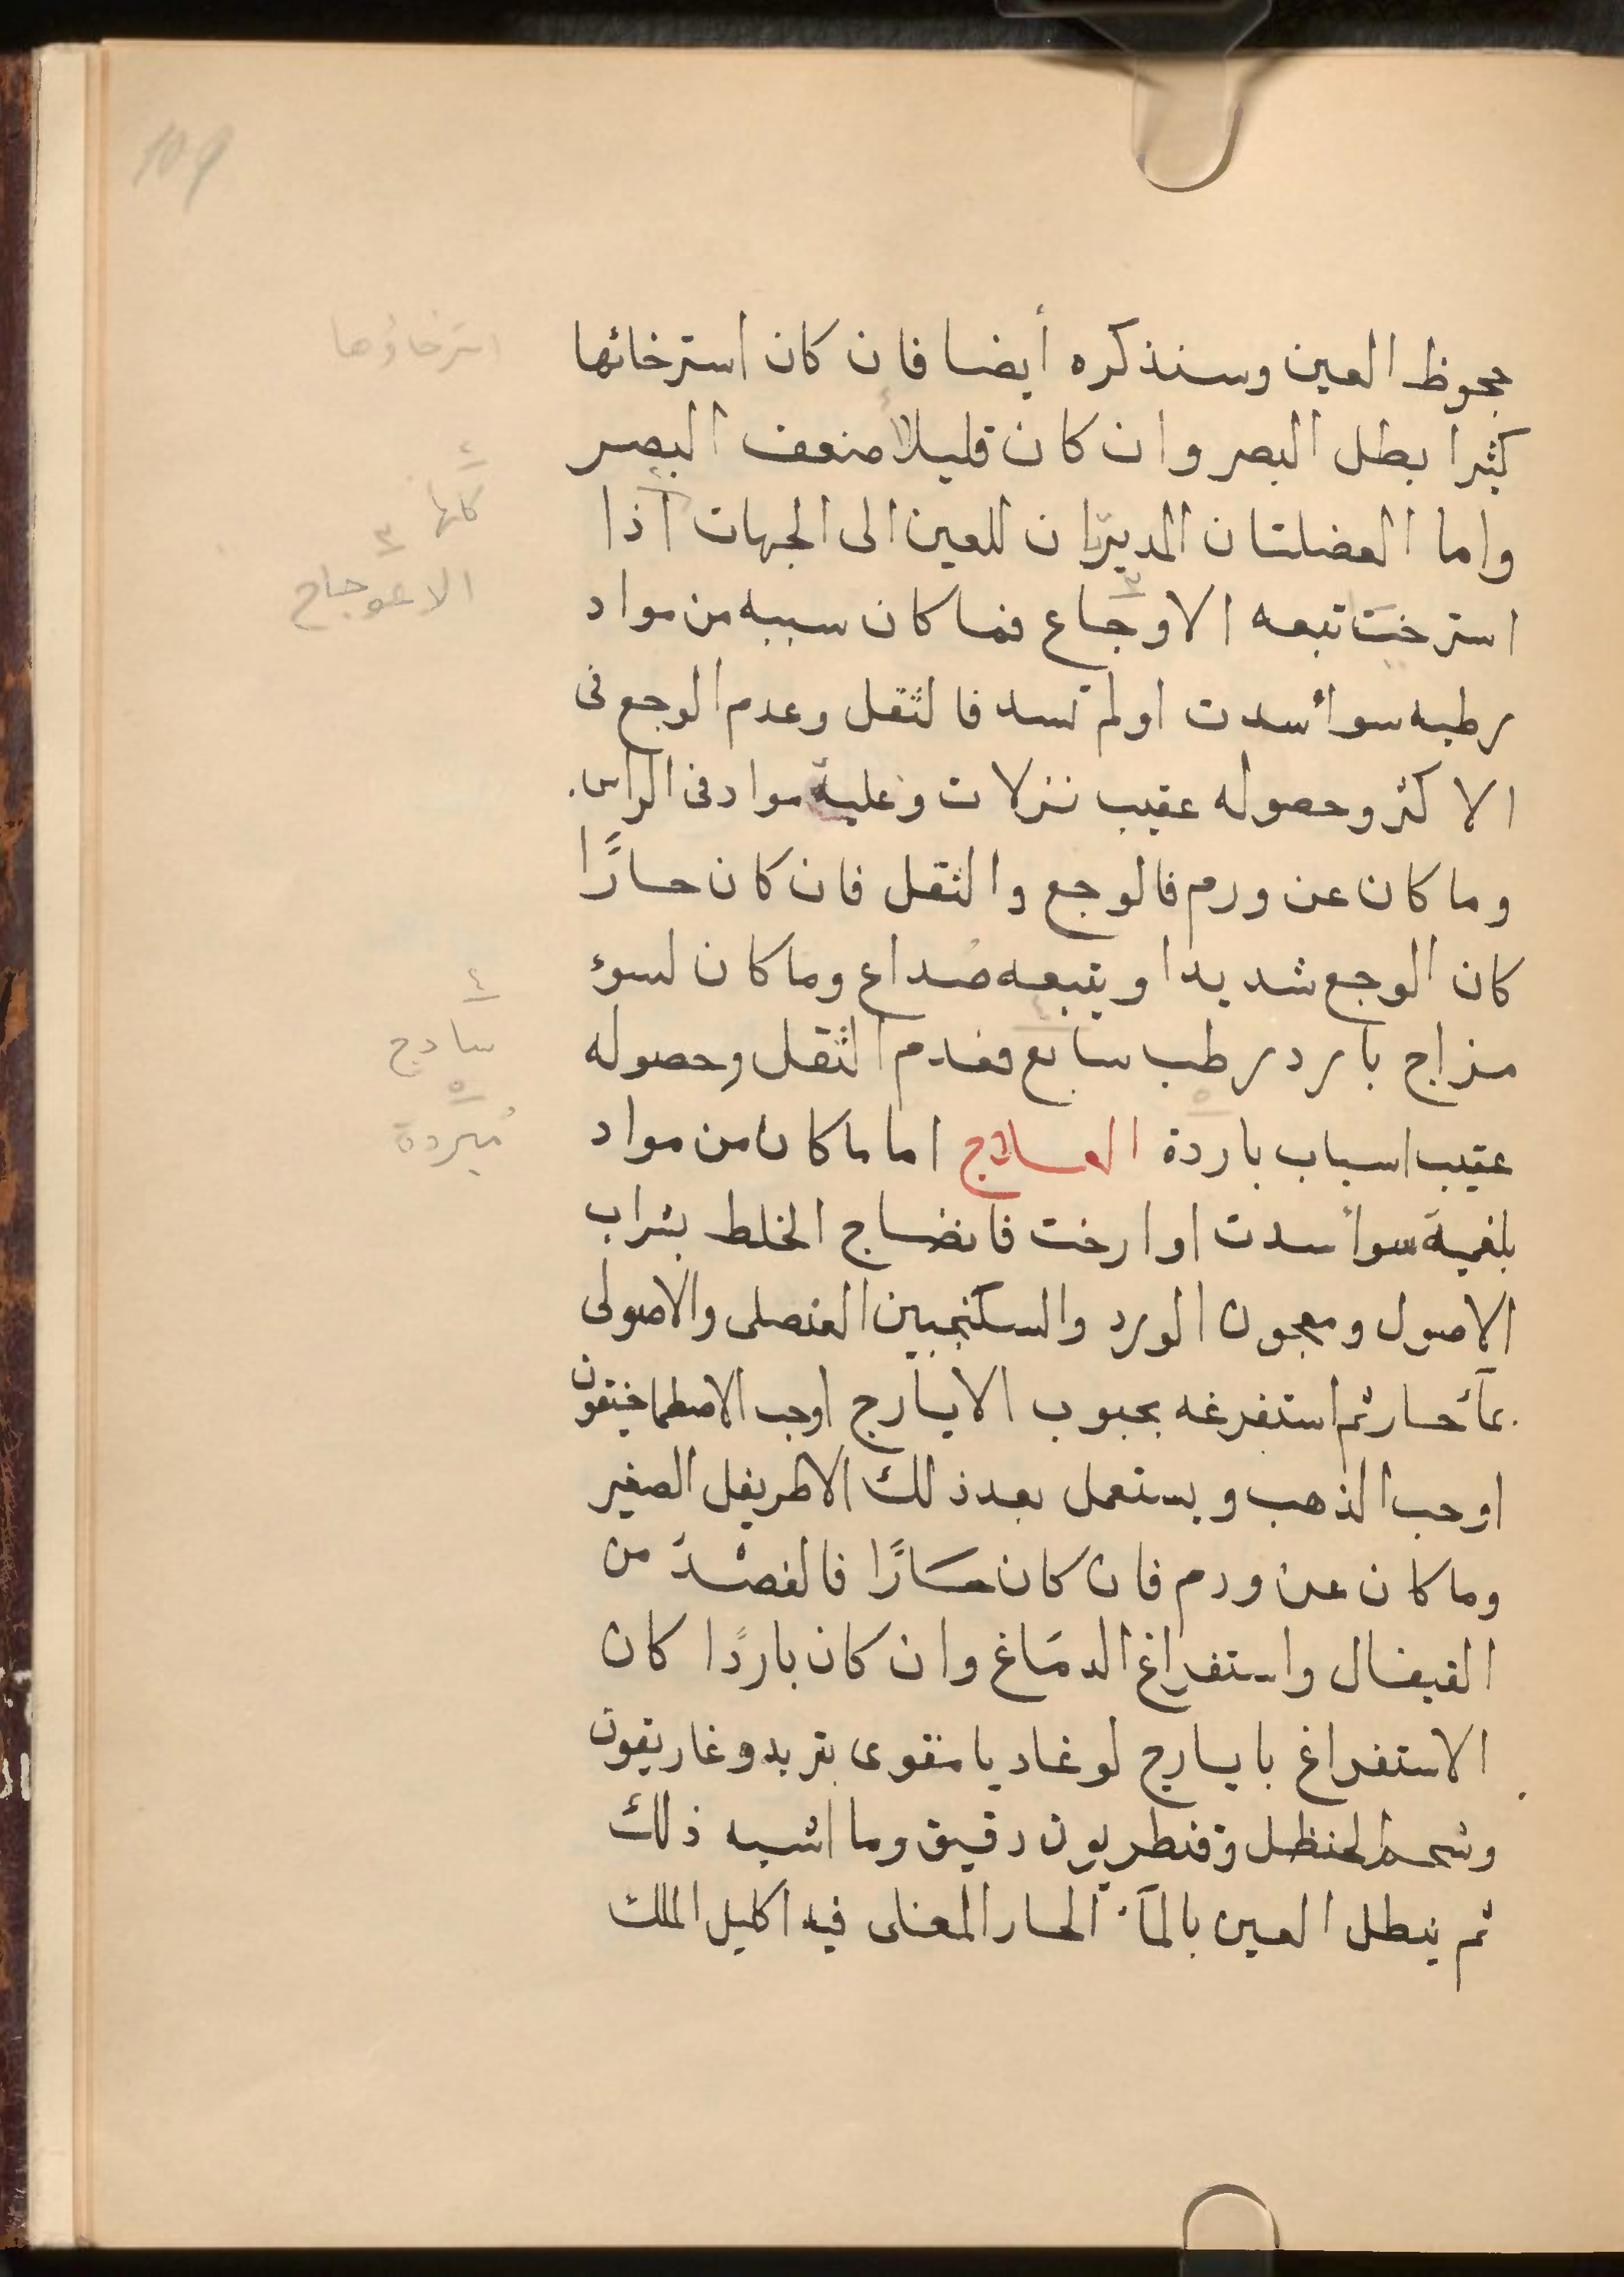 109
جحوظ العين وسنذكره أيضا فان كان استرخائها
استرخاؤها
كثيرا بطل البصر وان كان قليلا ضعف البصر
واما العضلتان المديرتان للعين الى الجهات اذا
٢
كانها
استرخت تبعه الاوجاع فما كان سببه من مواد
٣
الاعوجاج
رطبه سوأ سدت اولم تسد فالثقل وعدم الوجع فى
الاكثر وحصوله عقيب نزلات وغلبة مواد فى الراس.
وما كان عن ورم فالوجع والثقل فان كان حارًّا
كان الوجع شديدا ويتبعه صداع وما كان لسوء
مزاج بارد رطب سابع فعدم الثقل وحصوله
٤
سادج
عقيب اسباب باردة العلاج اما ما كان من مواد
٥
مُبردة
بلغمية سوأ سدت او ارخت فانضاج الخلط بشراب
الاصول ومعجون الورد والسكنجبين العنصلى والاصولى
بمآء حار ثم استفرغه بحبوب الايارج اوحب الاصطماخيقون
اوحب الذهب ويستعمل بعد ذلك الاطريفل الصغير
وما كان عن ورم فان كان حارًّا فالفصد من
القيفال واستفراغ الدماغ وان كان باردًا كان
الاستفراغ بايارج لوغاديا مقوى بتربد وغاريقون
وشحم الحنظل وقنطريون دقيق وما اشبه ذلك
ثم ينطل العين بالمآء الحار المغلى فيه اكليل الملك